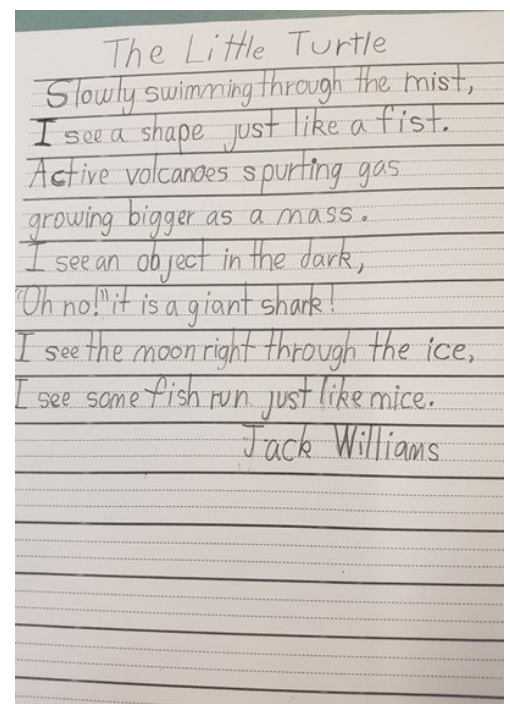 The Little Turtle
Slowly swimming through the mist,
I see a shape just like a fist.
Active volcanoes spurting gas
growing bigger as a mass.
I see an object in the dark,
"Oh no!" it is a giant shark!
I see the moon right through the ice,
I see some fish run just like mice.
Jack Williams